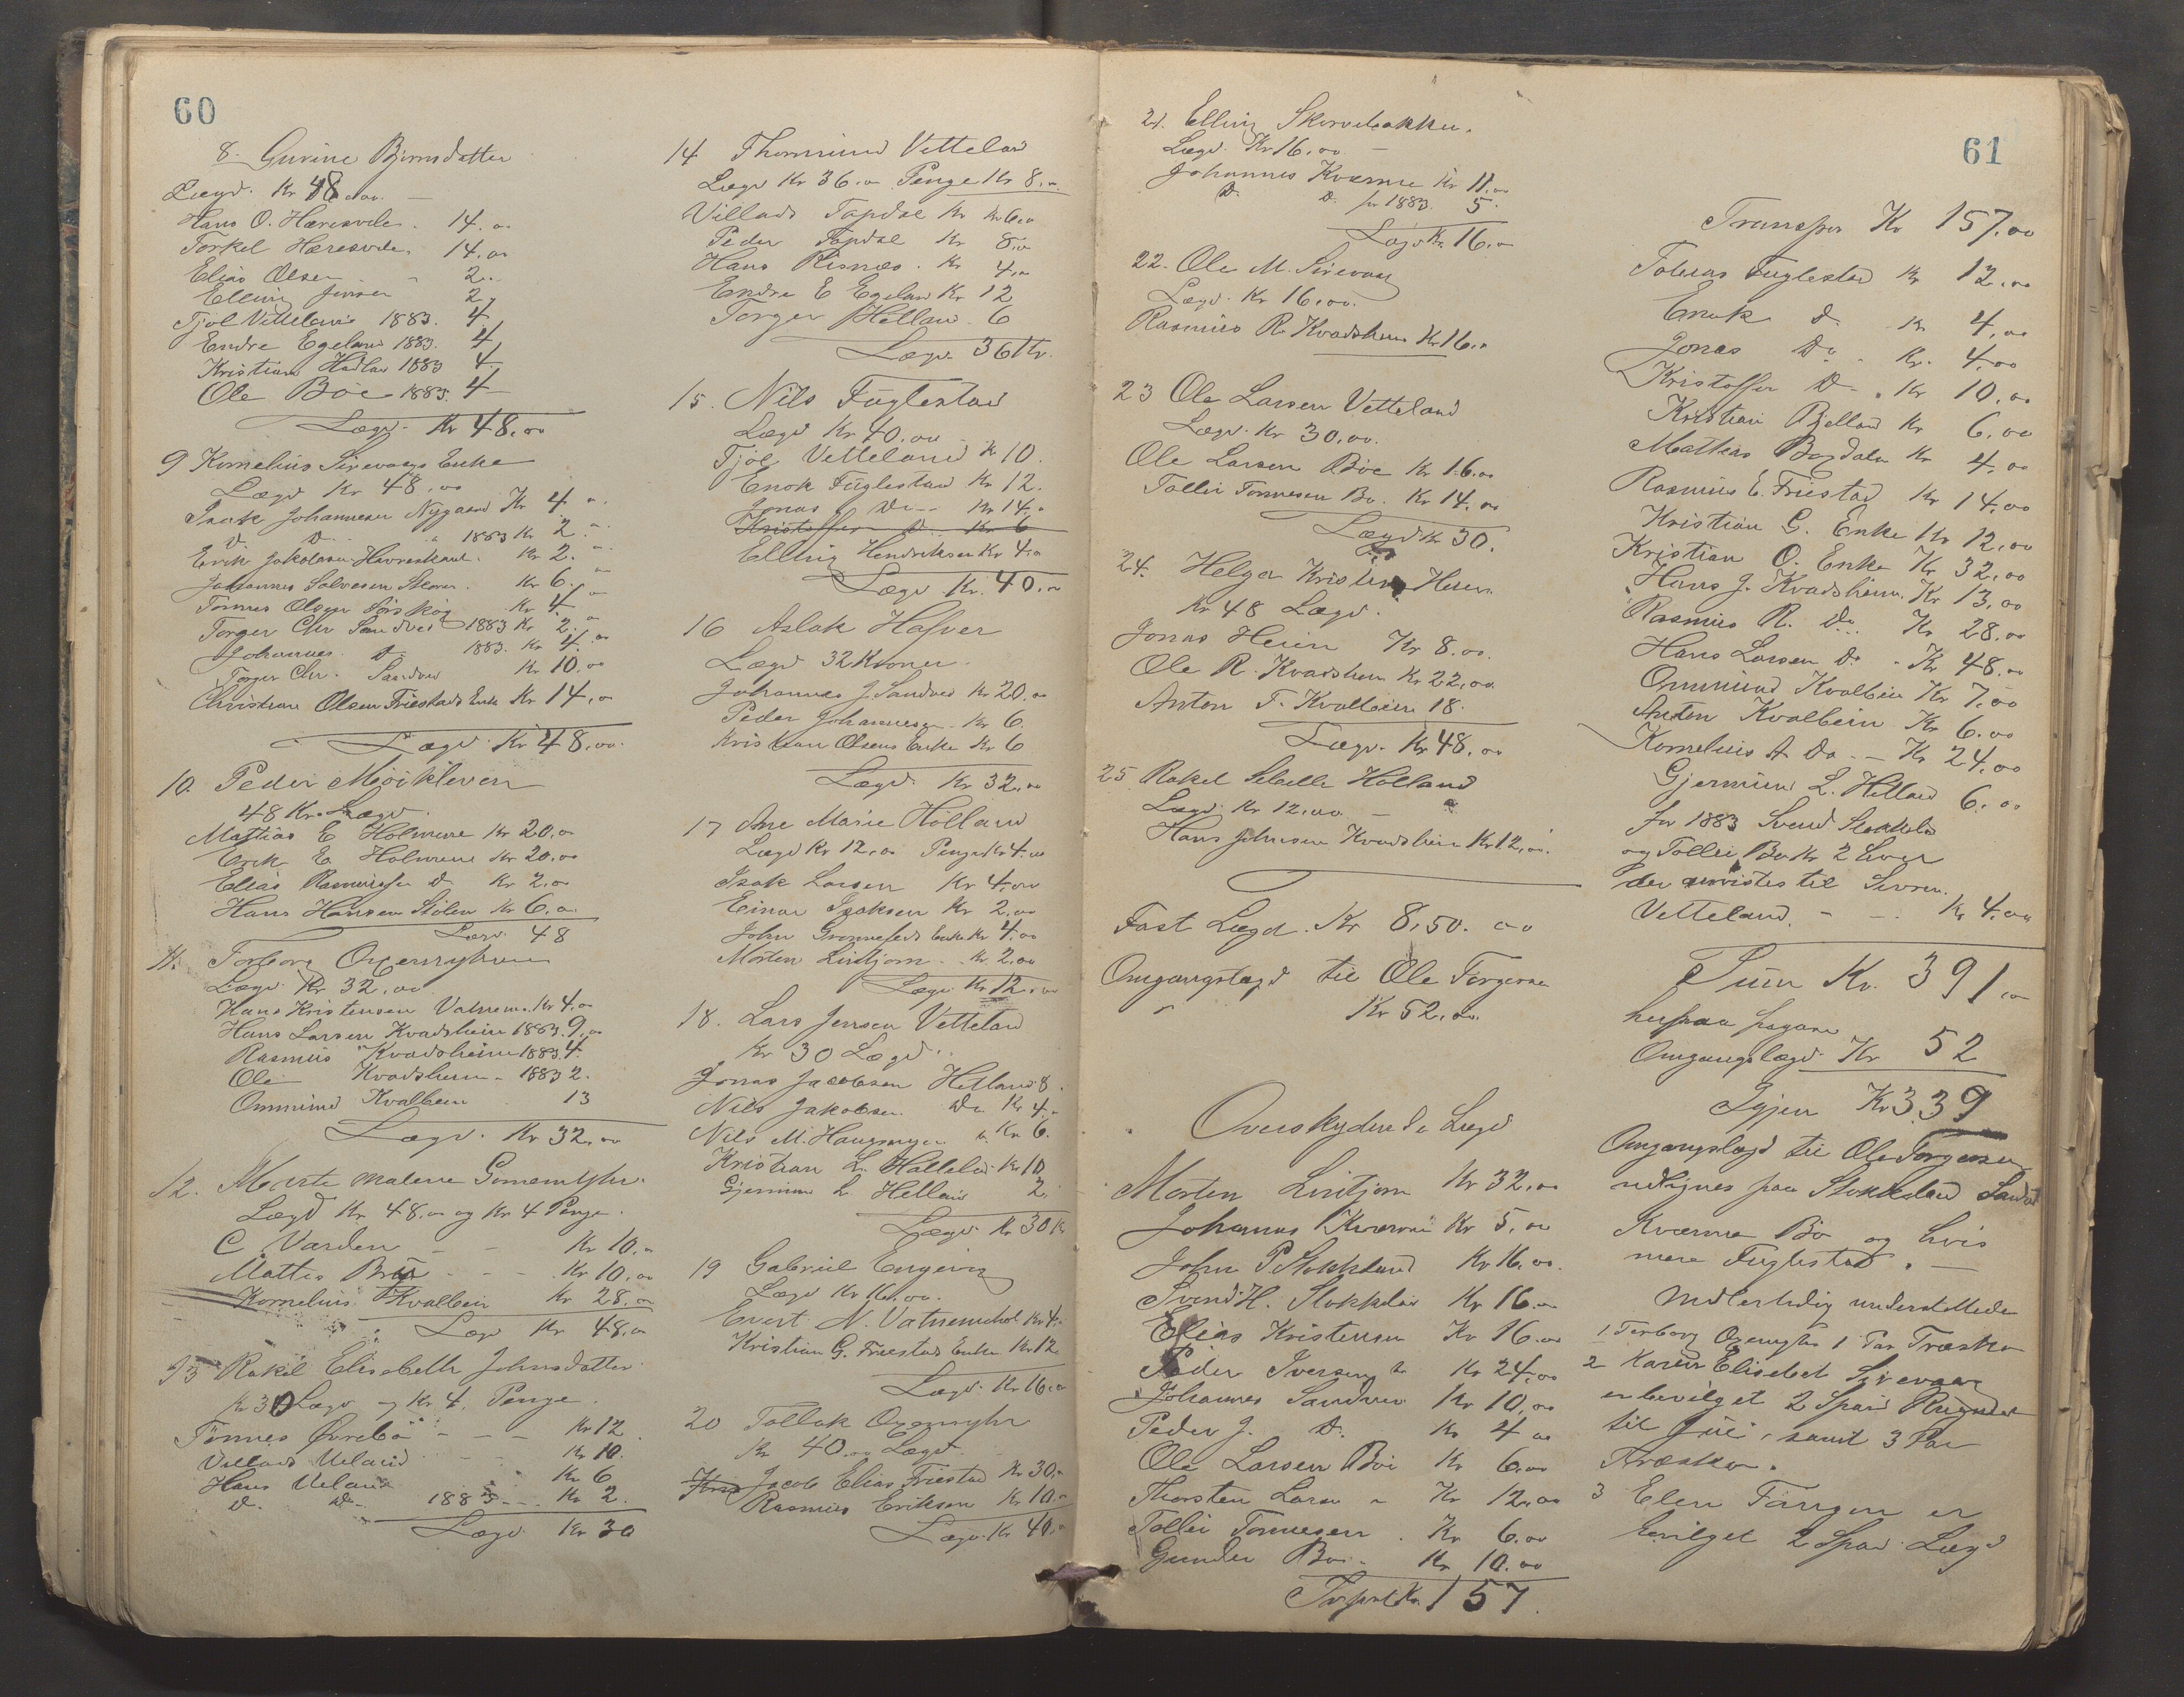 60
8. Gurine Bjornsdatter
Lægd. Kr 48.00.
Hans O. Haresvele. 14.00
Torkel Haresvele. 14.00
Elias Olsen - 2..
Elling Jensen 2
Tjøl Vetteland 1883. 4
Endre Egeland 1883. 4
Kristian Hadland 1883 4
Ole Böe 1883. 4
Lægd. Kr 48.00
9 Kornelius Sirevaags Enke
Lægd Kr 48.00
Isak Johannesen Nygaard Kr 4. "
D. D. " 1883 Kr 2. "
Erik Jakobsen Kr 2. "
Johannes Salvesen Kr 6. "
Tonnes Olsen Kr 4 "
Torger Chr Sandved 1883 Kr 2. "
Johannes D. 1883. Kr 4. 00
Torger Chr. Sandved Kr 10.00
Christian Olsen Friestads Enke Kr 14.00
Lægd. Kr 48.00.
10. Peder Mjoikleven
48 Kr. Lægd.
Mattias E Holmene Kr 20.00
Erik E. Holmene Kr 20.00
Elias D. Kr 2.00
Hans Hansen Stölen Kr 6.00
Lægd. 48
11. Torborg Oxemyhren
Lægd. Kr 32.00
Hans Kristensen Kr 4.00
Hans Larsen Kvadsheim 1883. 9.00
Rasmus Kvadsheim 1883. 4.
Ole Kvadsheim - 1883 2.
Ommund Kvalbein 13
Lægd. Kr 32.00
12. Marte Malene
Lægd Kr 48.00 og Kr 4 Penge.
C Varden - - Kr 10.00
Mattis - - Kr 10.00
Kornelius Kvalbein Kr 28.00
Lægd Kr 48.00
13 Rakel Elisabeth Johnsdatter
Kr 30 Lægd og Kr 4. Penge.
Tönnes Övrebö - - - Kr 12
Villads Ueland Kr 10.
Hans Ueland Kr 6
D. Do - 1883 - - Kr 2.
Lægd. Kr 30
14 Thormund Vetteland
Lægd Kr 36.00 Penge Kr 8.00
Villads Tapdal Kr 6.00
Peder Tapdal Kr 8.00
Hans Risnæs. Kr 4.00
Endre E Egeland Kr 12
Torger Helland. 6
Lægd. 36 Kr.
15. Nils Fuglestad
Lægd Kr 40.00
Tjøl Vetteland Kr 10.
Enok Fuglestad Kr 12.
Jonas Do - - Kr 14.
Kristoffer D. Kr 6
Elling Hendriksen Kr 4.00
Lægd Kr. 40.00
16 Aslak Hafver
Lægd 32 Kroner.
Johannes J. Sandved Kr 20.00
Peder Johannesen Kr 6.
Kristian Olsens Enke Kr 6
Lægd. Kr 32.00
17 Ane Marie Holland
Lægd Kr 12.00 Penge Kr 4.00
Isak Larsen Kr 4.00
Einar Isaksen Kr 2.00
John Kr 4.00
Morten Lintjorn - Kr. 2.00
Lægd Kr 12.00
18. Lars Jensen Vetteland
Kr 30 Lægd.
Jonas Jacobsen Helland 8.
Nils Jakobsen Do Kr 4.
Nils M. Haugmyren Kr 6.
Kristian L. Kr 10
Gjermund L. Helland 2.
Lægd Kr 30
19 Gabriel
Lægd Kr 16.00.
Evert N. Kr 4.
Kristian G. Friestads Enke Kr 12
Lægd. Kr 16.00
20 Tollak Oxemyhr
Kr 40.00 Lægd.
Kris Jacob Elias Friestad Kr 30.
Rasmus Eriksen Kr 10.
Lægd. Kr 40.
21. Elling Skorvebakken.
Lægd. Kr 16.00. -
Johannes Kværme Kr 11.00
D. D. for 1883. 5.
Lægd Kr 16.00
22. Ole M. Sirevaag
Lægd. Kr 16.00.
Rasmus R. Kvadsheim Kr 16.
23 Ole Larsen Vetteland
Lægd. Kr 30.00.
Ole Larsen Böe Kr 16.00
Tollei Tonnesen Bö. Kr 14.00
Lægd Kr 30.
24. Helga Kristine
Kr 48 Lægd.
Jonas Kr 8.00.
Ole R. Kvadsheim Kr 22.00
Anton T. Kvalbein 18.
Lægd. Kr 48.00
25 Rakel Holland
Lægd. Kr 12.00 -
Hans Johnsen Kvadsheim Kr 12.00.
Fast Lægd. Kr 8,50. 00
Omgangslægd til Ole Torgersen
Kr 52.00.
Overskydende Lægd
Morten Lintjorn Kr 32.00
Johannes Kværme Kr 5.00
John P. Stokkeland Kr 16.00.
Svend H. Stokkeland Kr 16.00
Elias Kristensen Kr 16.00
Peder Iversen Kr 24.00
Johannes Sandved Kr 10.00
Peder J. D. Kr 4 00
Ole Larsen Böe Kr 6.00
Thorsten Larsen Kr 12.00
Tollei Tonnesen. Kr 6.00
Gunder Bö - Kr 10.00
Trsport Kr. 157.
61
Transpor Kr 157.00
Tobias Fuglestad Kr 12.00
Enok D. Kr 4.00
Jonas Do. Kr. 4.00
Kristoffer D - . Kr 10.00
Kristian Bjelland Kr 6.00
Mattias Kr 4.00
Rasmus E. Friestad Kr 14.00
Kristian G. Enke Kr 12.00
Kristian O. Enke Kr 32.00
Hans J. Kvadsheim. Kr 13.00
Rasmus R. Do. Kr 28.00
Hans Larsen D. - Kr 48.00
Ommund Kvalbein Kr 7.00
Anton Kvalbein Kr 6.00
Kornelius A Do. - Kr 24.00
Gjermund L. Helland 6.00
for 1883 Svend Stokkeland
og Tollei Bö Kr 2 hver
der til
Vetteland. - - Kr 4.00
Sum Kr. 391.00
herpaa
Omgangslægd Kr 52
Igjen Kr 339
Omgangslægd til Ole Torgersen
udlignes paa Stokkeland Sandved
Kværme Bö og hvis
mere Fuglestad. -
Midlertidig understöttede
1. Torborg Oxemyhr 1 Par Træsko
2 Karen Elisabet Sirevaag
er bevilget 2 Spand
til Juli, samt 3 Par
Træsko.
3 Elen er
bevilget 2 Spand Lægd